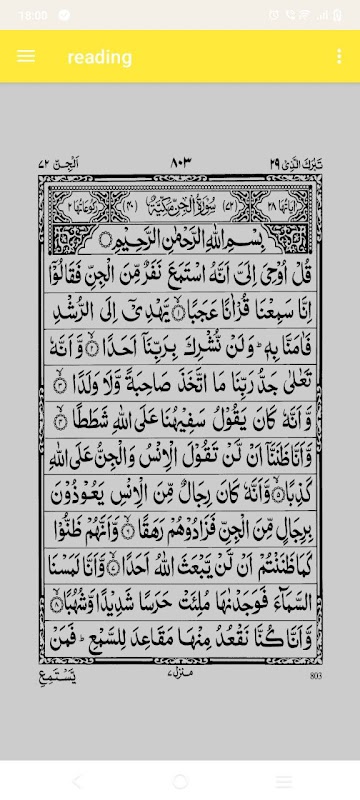 18:00
reading
تَبٰرَكَ الَّذِیْ ٢٩
٨٠٣
اَلْجِنّ ٧٢
اٰیَاتُهَا ٢٨
(٧٢) سُوْرَةُ الْجِنِّ مَكِّیَّةٌ (٤٠)
رُكُوْعَاتُهَا ٢
بِسْمِ اللّٰهِ الرَّحْمٰنِ الرَّحِیْمِ
قُلْ اُوْحِیَ اِلَیَّ اَنَّهُ اسْتَمَعَ نَفَرٌ مِّنَ الْجِنِّ فَقَالُوْۤا
اِنَّا سَمِعْنَا قُرْاٰنًا عَجَبًا ۙ﴿١﴾ یَّهْدِیْۤ اِلَی الرُّشْدِ
فَاٰمَنَّا بِهٖ ؕ وَلَنْ نُّشْرِكَ بِرَبِّنَاۤ اَحَدًا ۙ﴿٢﴾ وَّاَنَّهٗ
تَعٰلٰی جَدُّ رَبِّنَا مَا اتَّخَذَ صَاحِبَةً وَّلَا وَلَدًا ۙ﴿٣﴾
وَّاَنَّهٗ كَانَ یَقُوْلُ سَفِیْهُنَا عَلَی اللّٰهِ شَطَطًا ۙ﴿٤﴾
وَّاَنَّا ظَنَنَّاۤ اَنْ لَّنْ تَقُوْلَ الْاِنْسُ وَالْجِنُّ عَلَی اللّٰهِ
كَذِبًا ۙ﴿٥﴾ وَّاَنَّهٗ كَانَ رِجَالٌ مِّنَ الْاِنْسِ یَعُوْذُوْنَ
بِرِجَالٍ مِّنَ الْجِنِّ فَزَادُوْهُمْ رَهَقًا ۙ﴿٦﴾ وَّاَنَّهُمْ ظَنُّوْا
كَمَا ظَنَنْتُمْ اَنْ لَّنْ یَّبْعَثَ اللّٰهُ اَحَدًا ۙ﴿٧﴾ وَّاَنَّا لَمَسْنَا
السَّمَآءَ فَوَجَدْنٰهَا مُلِئَتْ حَرَسًا شَدِیْدًا وَّشُهُبًا ۙ﴿٨﴾
وَّاَنَّا كُنَّا نَقْعُدُ مِنْهَا مَقَاعِدَ لِلسَّمْعِ ؕ فَمَنْ
یَّسْتَمِعِ
منزل ٧
803